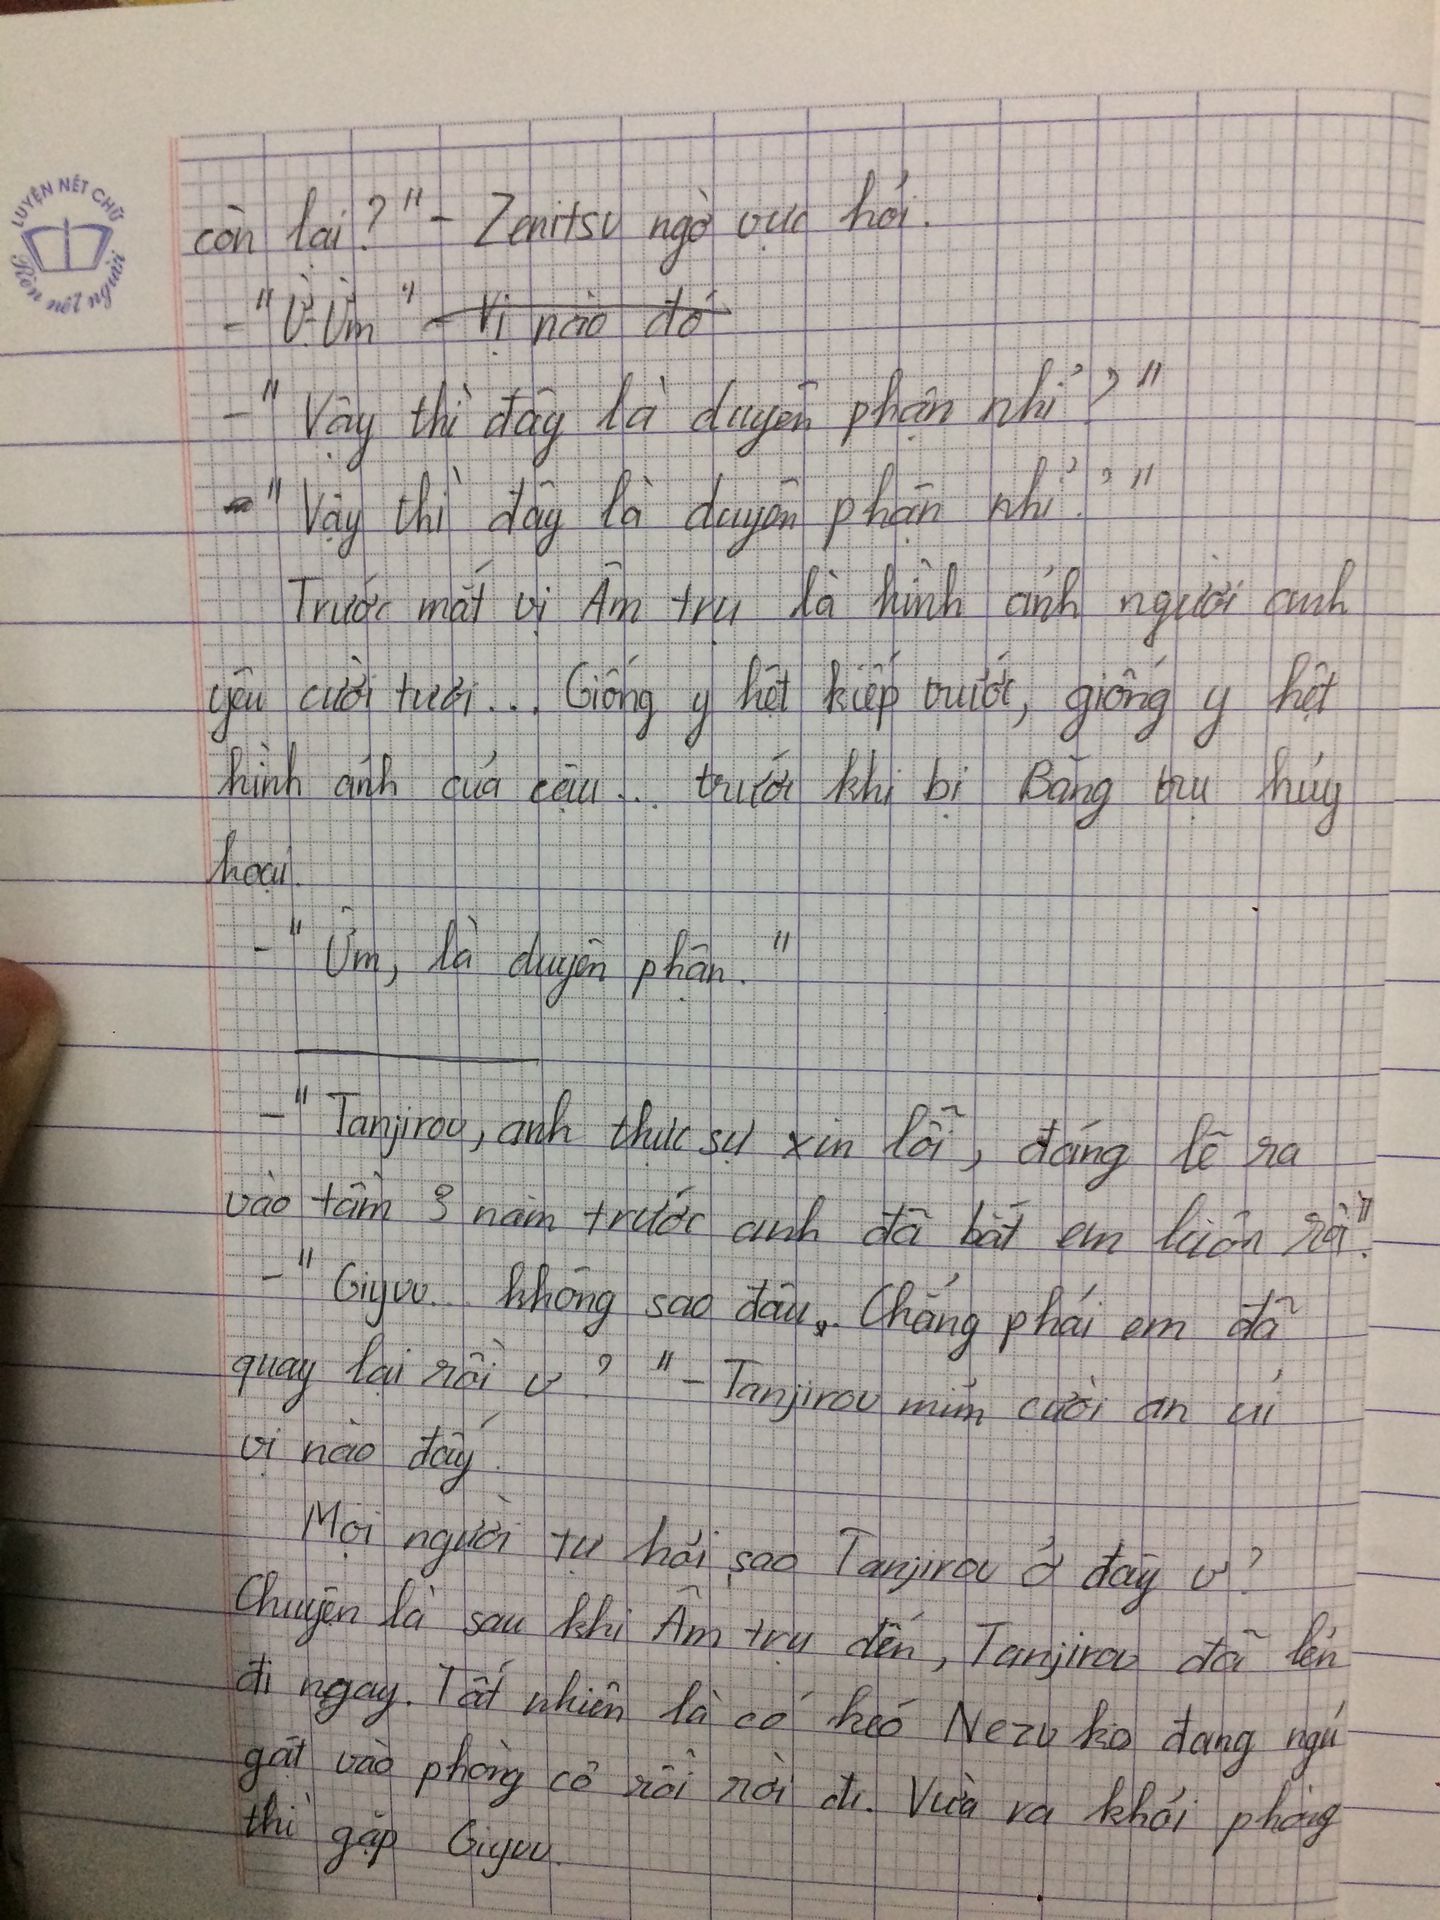 LUYỆN NÉT CHỮ
Rèn nết người
còn lại?" - Zenitsu ngờ vực hỏi.
- "Ừ.. Ừm" - Vị nào đó
- "Vậy thì đây là duyên phận nhỉ?"
- "Vậy thì đây là duyên phận nhỉ?"
Trước mắt vị Âm trụ là hình ảnh người anh
yêu cười tươi... Giống y hệt kiếp trước, giống y hệt
hình ảnh của cậu... trước khi bị Băng trụ hủy
hoại.
- "Ừm, là duyên phận."
- "Tanjirou, anh thực sự xin lỗi, đáng lẽ ra
vào tầm 3 năm trước anh đã bắt em luôn rồi."
- "Giyuu... không sao đâu. Chẳng phải em đã
quay lại rồi ư?" - Tanjirou mỉm cười an ủi
vị nào đấy.
Mọi người tự hỏi sao Tanjirou ở đây ư?
Chuyện là sau khi Âm trụ đến, Tanjirou đã lẻn
đi ngay. Tất nhiên là có kéo Nezuko đang ngủ
gật vào phòng cô rồi rời đi. Vừa ra khỏi phòng
thì gặp Giyuu.